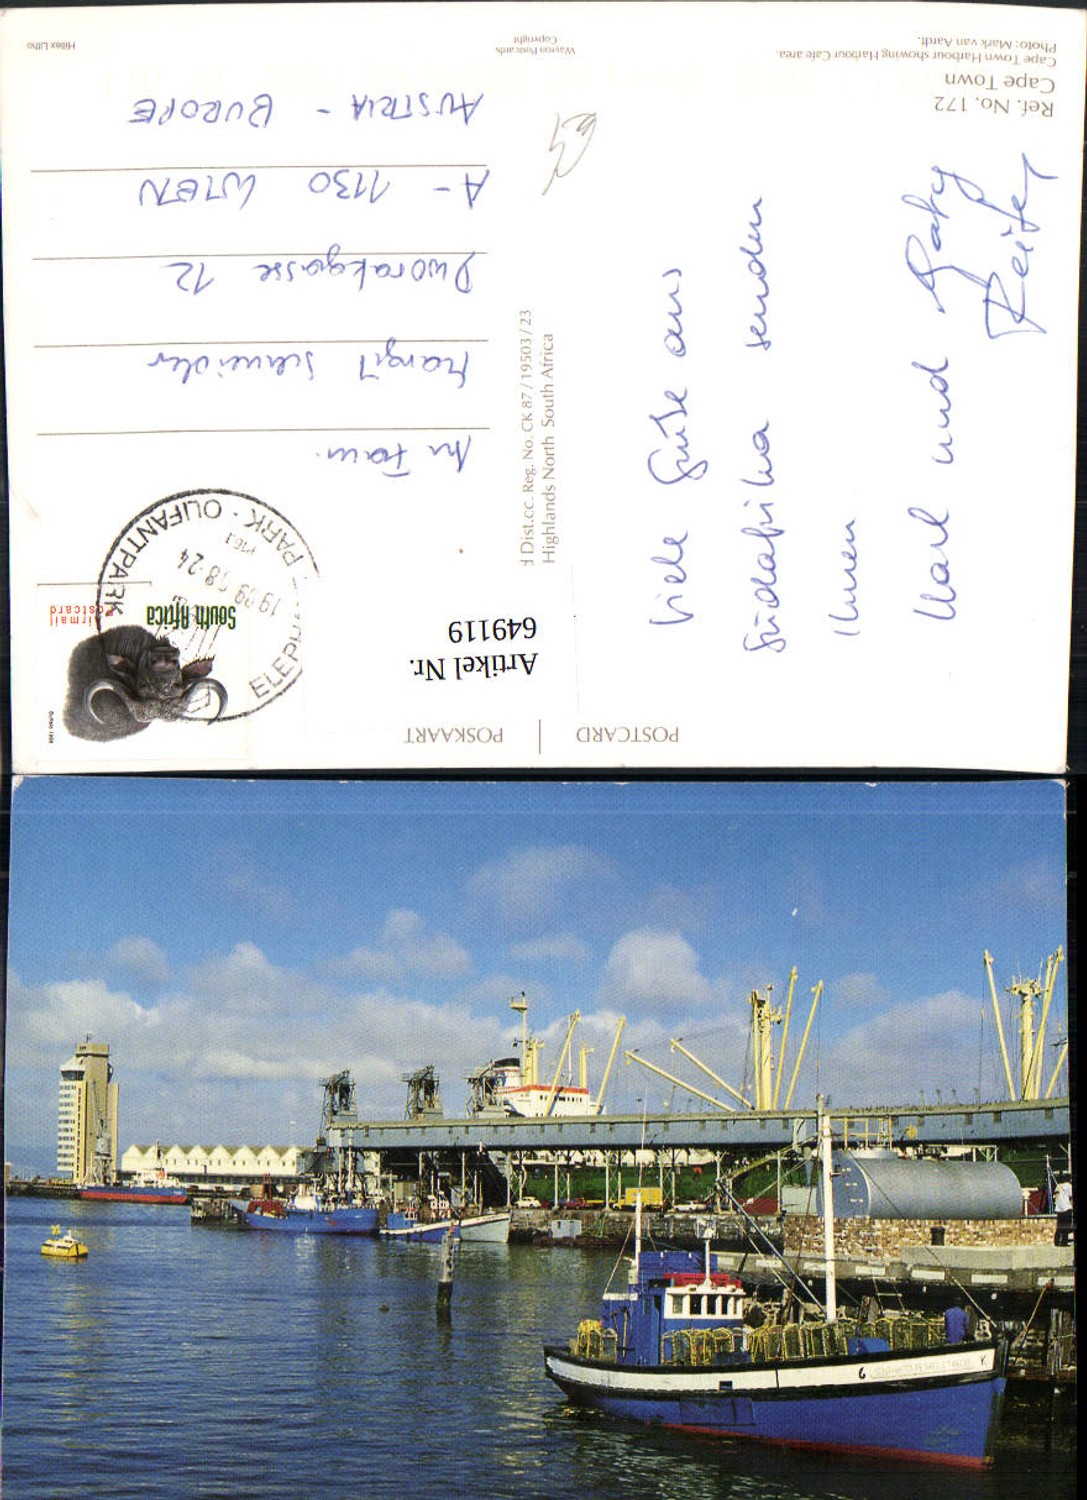 POSTCARD | POSKAART
Artikel Nr.
649119
South Africa
Airmail
Postcard
Buffalo 1998
ELEPH PARK - OLIFANTPARK
1999-08-24
Viele Grüße aus
Südafrika senden
Ihnen
Karl und Gaby
Reifer
An Fam.
Margit Schneider
Dworakgasse 12
A - 1130 WIEN
AUSTRIA - EUROPE
Dist.cc. Reg. No. CK 87 / 19503 / 23
Highlands North South Africa
Ref. No. 172
Cape Town
Cape Town Harbour showing Harbour Cafe area.
Photo: Mark van Aardt.
Wayron Postcards
Copyright
Hiltex Litho